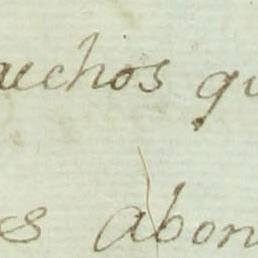 uchos qu
s abon